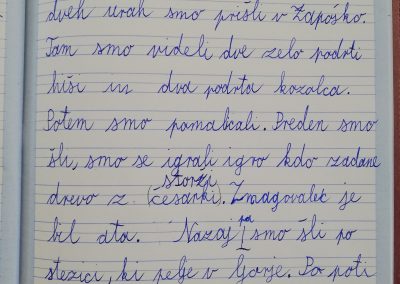 dveh urah smo prišli v Zapóško.
Tam smo videli dve zelo podrti
hiši in dva podrta kozolca.
Potem smo pamalicali. Preden smo
šli, smo se igrali igro kdo zadane
storži
drevo z (česarki). Zmagovalec je
bil ata. Nazaj pa smo šli po
stezici, ki pelje v Gorje. Po poti